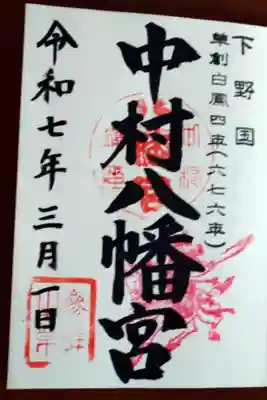 下野国
草創白鳳四年(六七六年)
中村八幡宮
令和七年三月一日
参拝